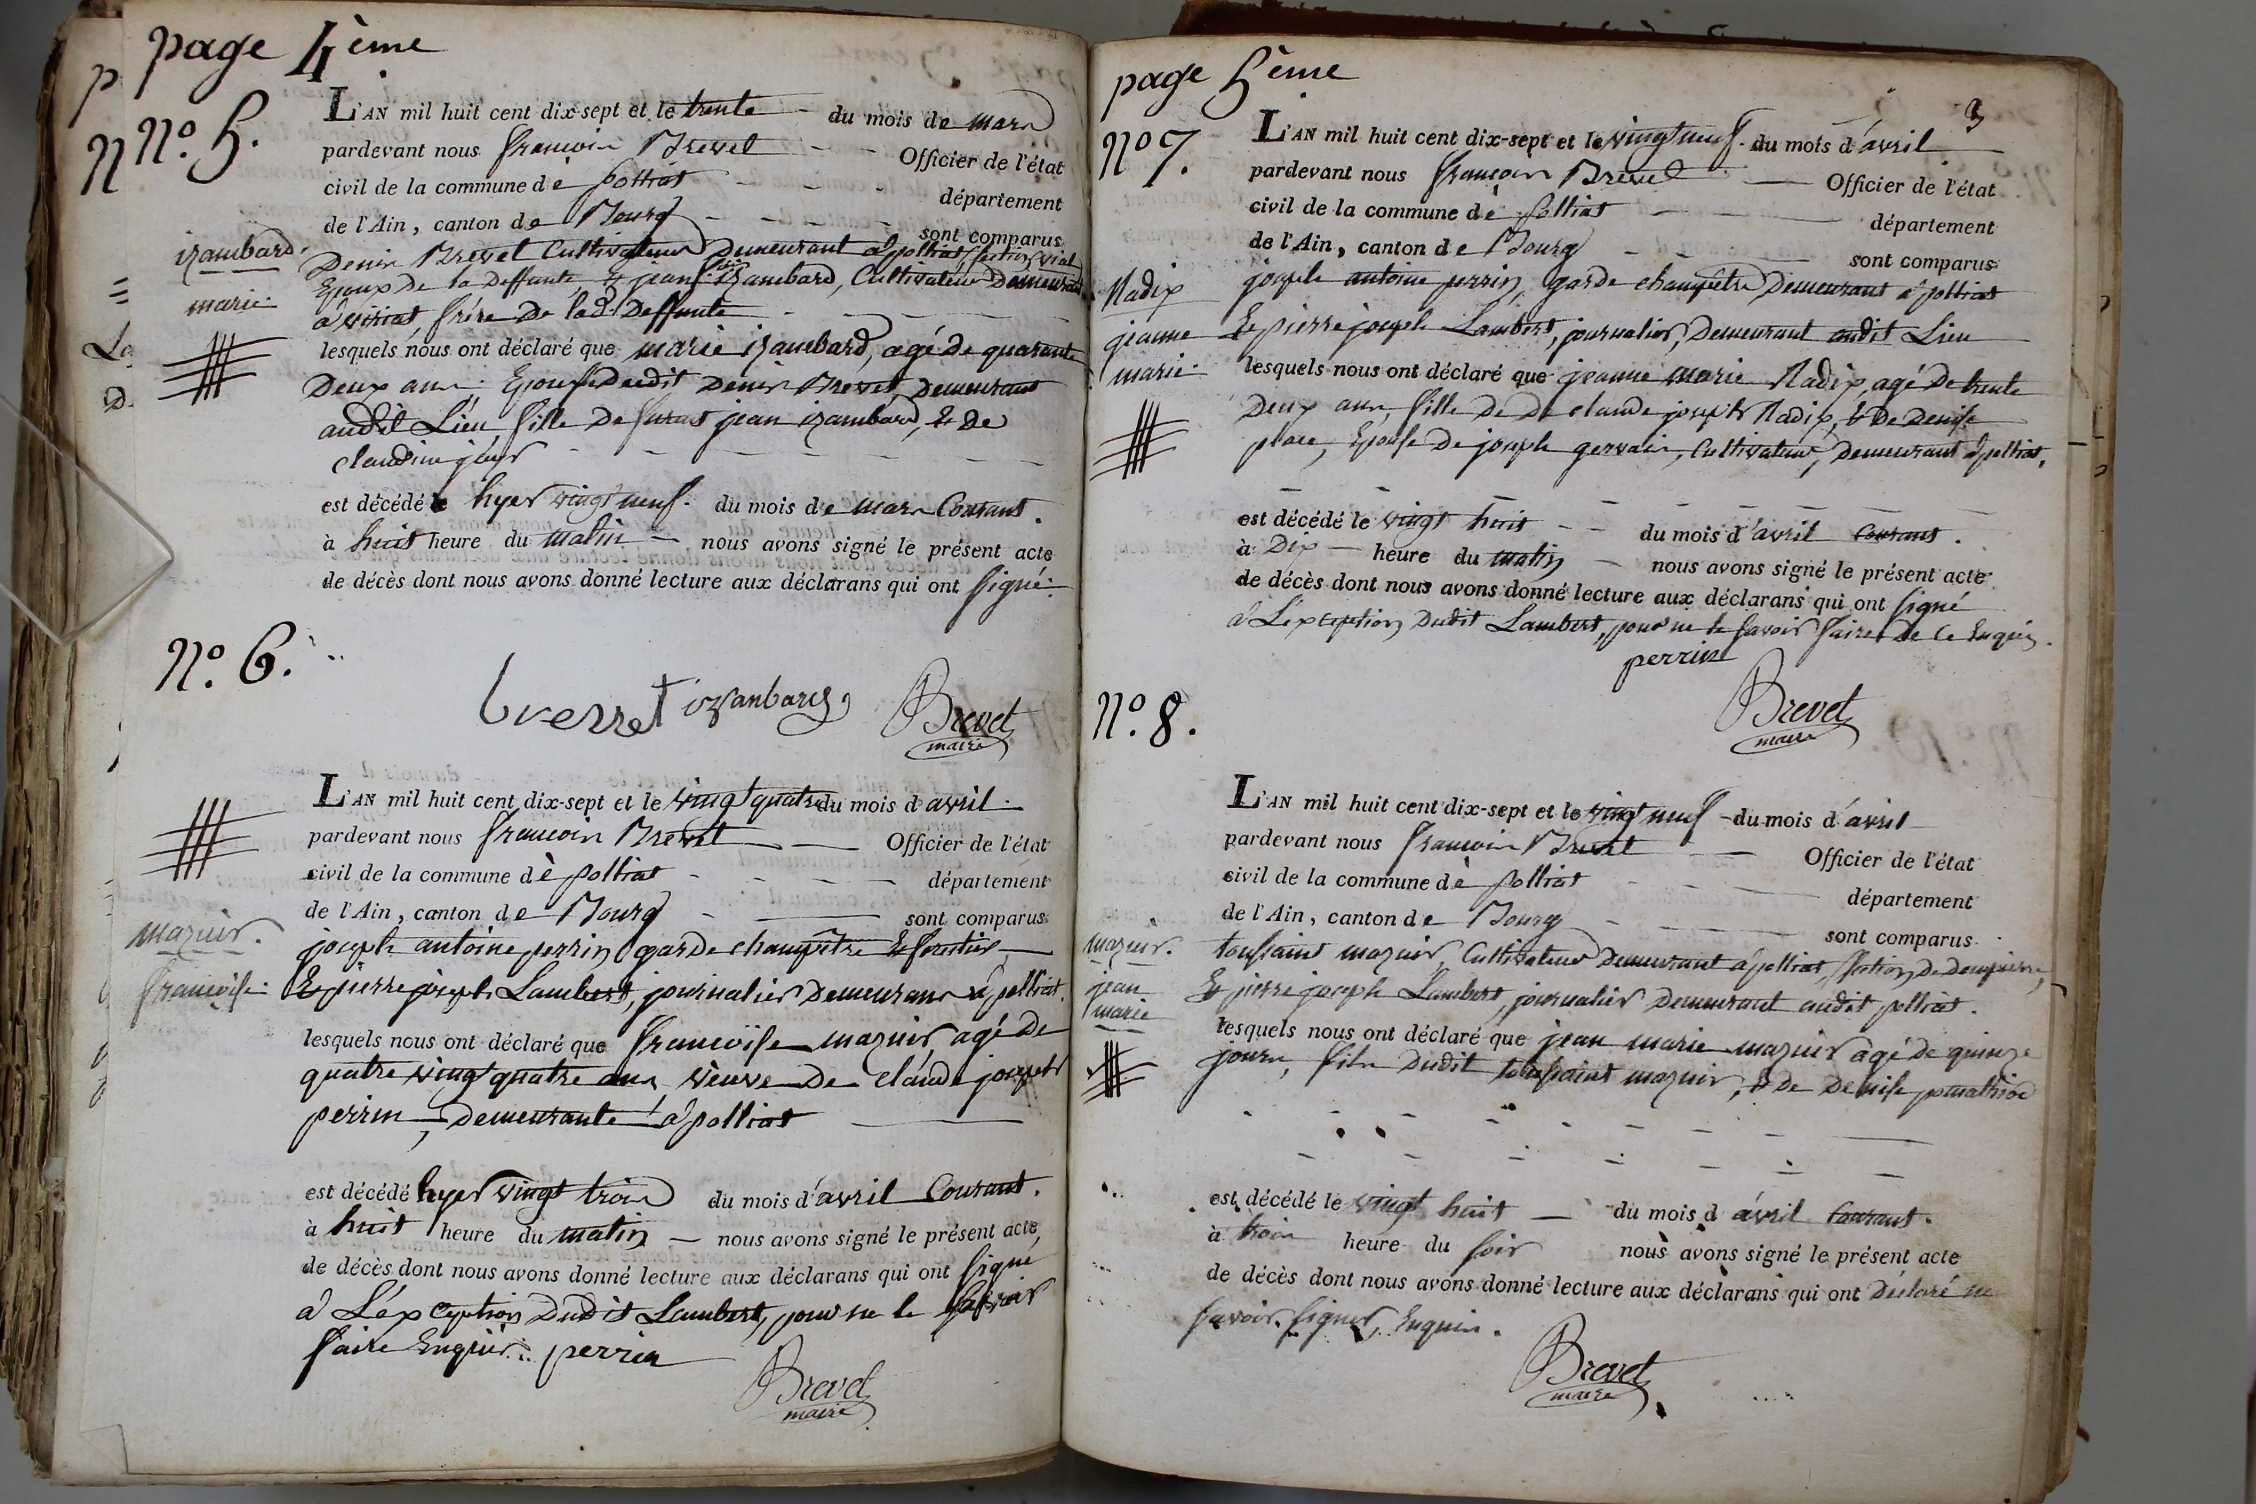 page 4ème
N.º 5.
L'AN mil huit cent dix-sept et le trente du mois de mars
pardevant nous françois Brevet Officier de l'état
civil de la commune dè polliat département
de l'Ain, canton de Bourg sont comparus
izambard.
marie.
Denis Brevet Cultivateur Demeurant à polliat, section
Epoux de la deffunte, & jean izambard, Cultivateur Demeurant
à viriat, frère de lad. Deffunte
lesquels nous ont déclaré que marie izambard, agé de quarante
Deux ans. Epouse dudit Denis Brevet, Demeurant
audit Lieu, fille de furent jean izambard, & de
claudine
est décédé hyer vingt neuf. du mois de mars Courant.
à huit heure du matin nous avons signé le présent acte
de décès dont nous avons donné lecture aux déclarans qui ont signé.
brevet izanbard
Brevet
maire
N.º 6.
L'AN mil huit cent dix-sept et le vingt quatre du mois d avril.
pardevant nous françois Brevet Officier de l'état
civil de la commune dè polliat département
de l'Ain, canton de Bourg sont comparus
mazuir.
françoise.
joseph antoine perrin garde champêtre & forestier
Et pierre joseph Lambert, journalier Demeurans à polliat.
lesquels nous ont déclaré que françoise mazuir agé de
quatre vingt quatre ans, vèuve de claude joseph
perrin, demeurante à polliat
est décédé hyer vingt trois du mois d'avril Courant.
à huit heure du matin nous avons signé le présent acte
de décès dont nous avons donné lecture aux déclarans qui ont signé
à L'éxception Dudit Lambert, pour ne le savoir
faire Enquis. perrin
Brevet
maire
page 5ème
3
Nº 7.
L'AN mil huit cent dix-sept et le vingt neuf. du mois d'avril
pardevant nous françois Brevet Officier de l'état
civil de la commune dè polliat département
de l'Ain, canton de Bourg sont comparus
Radix
jeanne
marie.
joseph antoine perrin, garde champêtre Demeurant à polliat
Et pierre joseph Lambert, journalier, Demeurant audit Lieu
lesquels nous ont déclaré que jeanne marie Radix, agé de trente
Deux ans, fille de De claude joseph Radix, & de Denise
Epouse de joseph gervais, Cultivateur, Demeurant à polliat.
est décédé le vingt huit du mois d'avril Courant.
à Dix heure du matin nous avons signé le présent acte
de décès dont nous avons donné lecture aux déclarans qui ont signé
à L'éxception Dudit Lambert, pour ne le savoir faire de Ce Enquis.
perrin
Brevet
maire
N.º 8.
L'AN mil huit cent dix-sept et le vingt neuf du mois d'avril
pardevant nous françois Brevet Officier de l'état
civil de la commune dè polliat département
de l'Ain, canton de Bourg sont comparus
mazuir.
jean
marie
toussaint mazuir, Cultivateur Demeurant à polliat, section de dompierre,
Et pierre joseph Lambert, journalier Demeurant audit polliat.
lesquels nous ont déclaré que jean marie mazuir âgé de quinze
jours, fils Dudit toussaint mazuir, & de Denise
est décédé le vingt huit du mois d avril Courant.
à trois heure du soir nous avons signé le présent acte
de décès dont nous avons donné lecture aux déclarans qui ont Déclaré ne
savoir signer, Enquis.
Brevet
maire